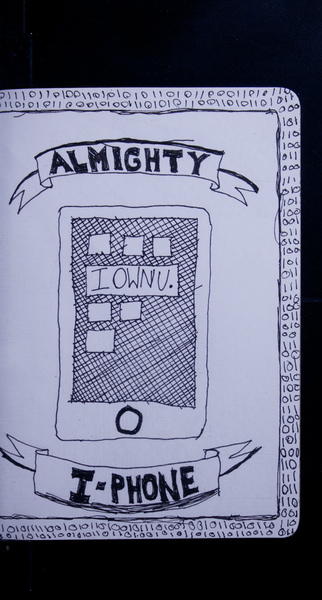 ALMIGHTY
I OWN U.
I-PHONE